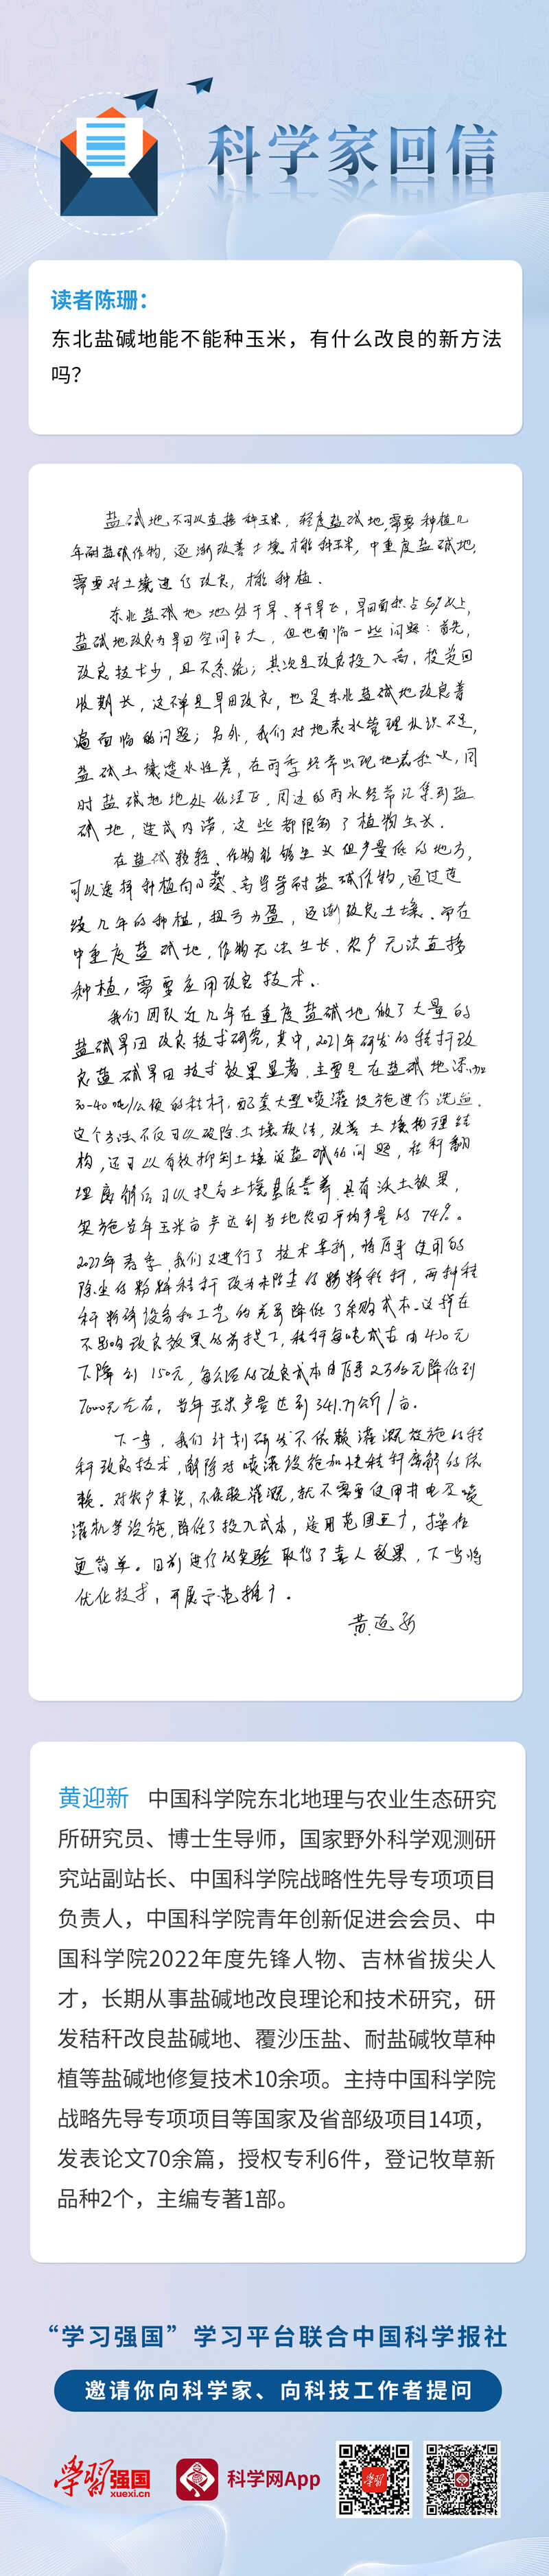 科学家回信
读者陈珊：
东北盐碱地能不能种玉米，有什么改良的新方法
吗？
盐碱地不可以直接种玉米，轻度盐碱地，需要种植几
年耐盐碱作物，逐渐改善土壤才能种玉米，中重度盐碱地，
需要对土壤进行改良，才能种植。
东北盐碱地地处干旱、半干旱区，旱田面积占以上，
盐碱地改良为旱田空间巨大，但也面临一些问题：首先，
改良技术少，且不系统；其次是改良投入高，投资回
收期长，这不单是旱田改良，也是东北盐碱地改良普
遍面临的问题；另外，我们对地表水管理认识不足，
盐碱土壤透水性差，在雨季经常出现地表积水，同
时盐碱地地处低洼区，周边的雨水经常汇集到盐
碱地，造成内涝，这些都限制了植物生长。
在盐碱较轻、作物能够生长但产量低的地方，
可以选择种植向日葵、高粱等耐盐碱作物，通过连
续几年的种植，扭亏为盈，逐渐改良土壤。而在
中重度盐碱地，作物无法生长，农户无法直接
种植，需要应用改良技术。
我们团队近几年在重度盐碱地做了大量的
盐碱旱田改良技术研究，其中，2021年研发的秸秆改
良盐碱旱田技术效果显著，主要是在盐碱地添加
30-40吨/公顷的秸秆，配套大型喷灌设施进行洗盐。
这个方法不仅可以破除土壤板结，改善土壤物理结
构，还可以有效抑制土壤返盐碱的问题，秸秆翻
埋腐解后可以提高土壤基质营养，具有沃土效果，
实施当年玉米亩产达到当地农田平均产量的74%。
2022年春季，我们又进行了技术革新，将原来使用的
除尘的粉碎秸秆改为未除尘的粉碎秸秆，两种秸
秆粉碎设备和工艺的差异降低了采购成本。这样在
不影响改良效果的前提下，秸秆每吨成本由430元
下降到150元，每公顷的改良成本由原来2万余元降低到
7000元左右，当年玉米产量达到341.77公斤/亩。
下一步，我们计划研发不依赖灌溉设施的秸
秆改良技术，解除对喷灌设施和快秸秆腐解的依
赖。对农户来说，不依赖灌溉，就不需要使用井电及喷
灌机等设施，降低了投入成本，适用范围更广，操作
更简单。目前进行的实验取得了喜人效果，下一步将
优化技术，开展示范推广。
黄迎新
黄迎新 中国科学院东北地理与农业生态研究
所研究员、博士生导师，国家野外科学观测研
究站副站长、中国科学院战略性先导专项项目
负责人，中国科学院青年创新促进会会员、中
国科学院2022年度先锋人物、吉林省拔尖人
才，长期从事盐碱地改良理论和技术研究，研
发秸秆改良盐碱地、覆沙压盐、耐盐碱牧草种
植等盐碱地修复技术10余项。主持中国科学院
战略先导专项项目等国家及省部级项目14项，
发表论文70余篇，授权专利6件，登记牧草新
品种2个，主编专著1部。
“学习强国”学习平台联合中国科学报社
邀请你向科学家、向科技工作者提问
学习强国 xuexi.cn 科学网App